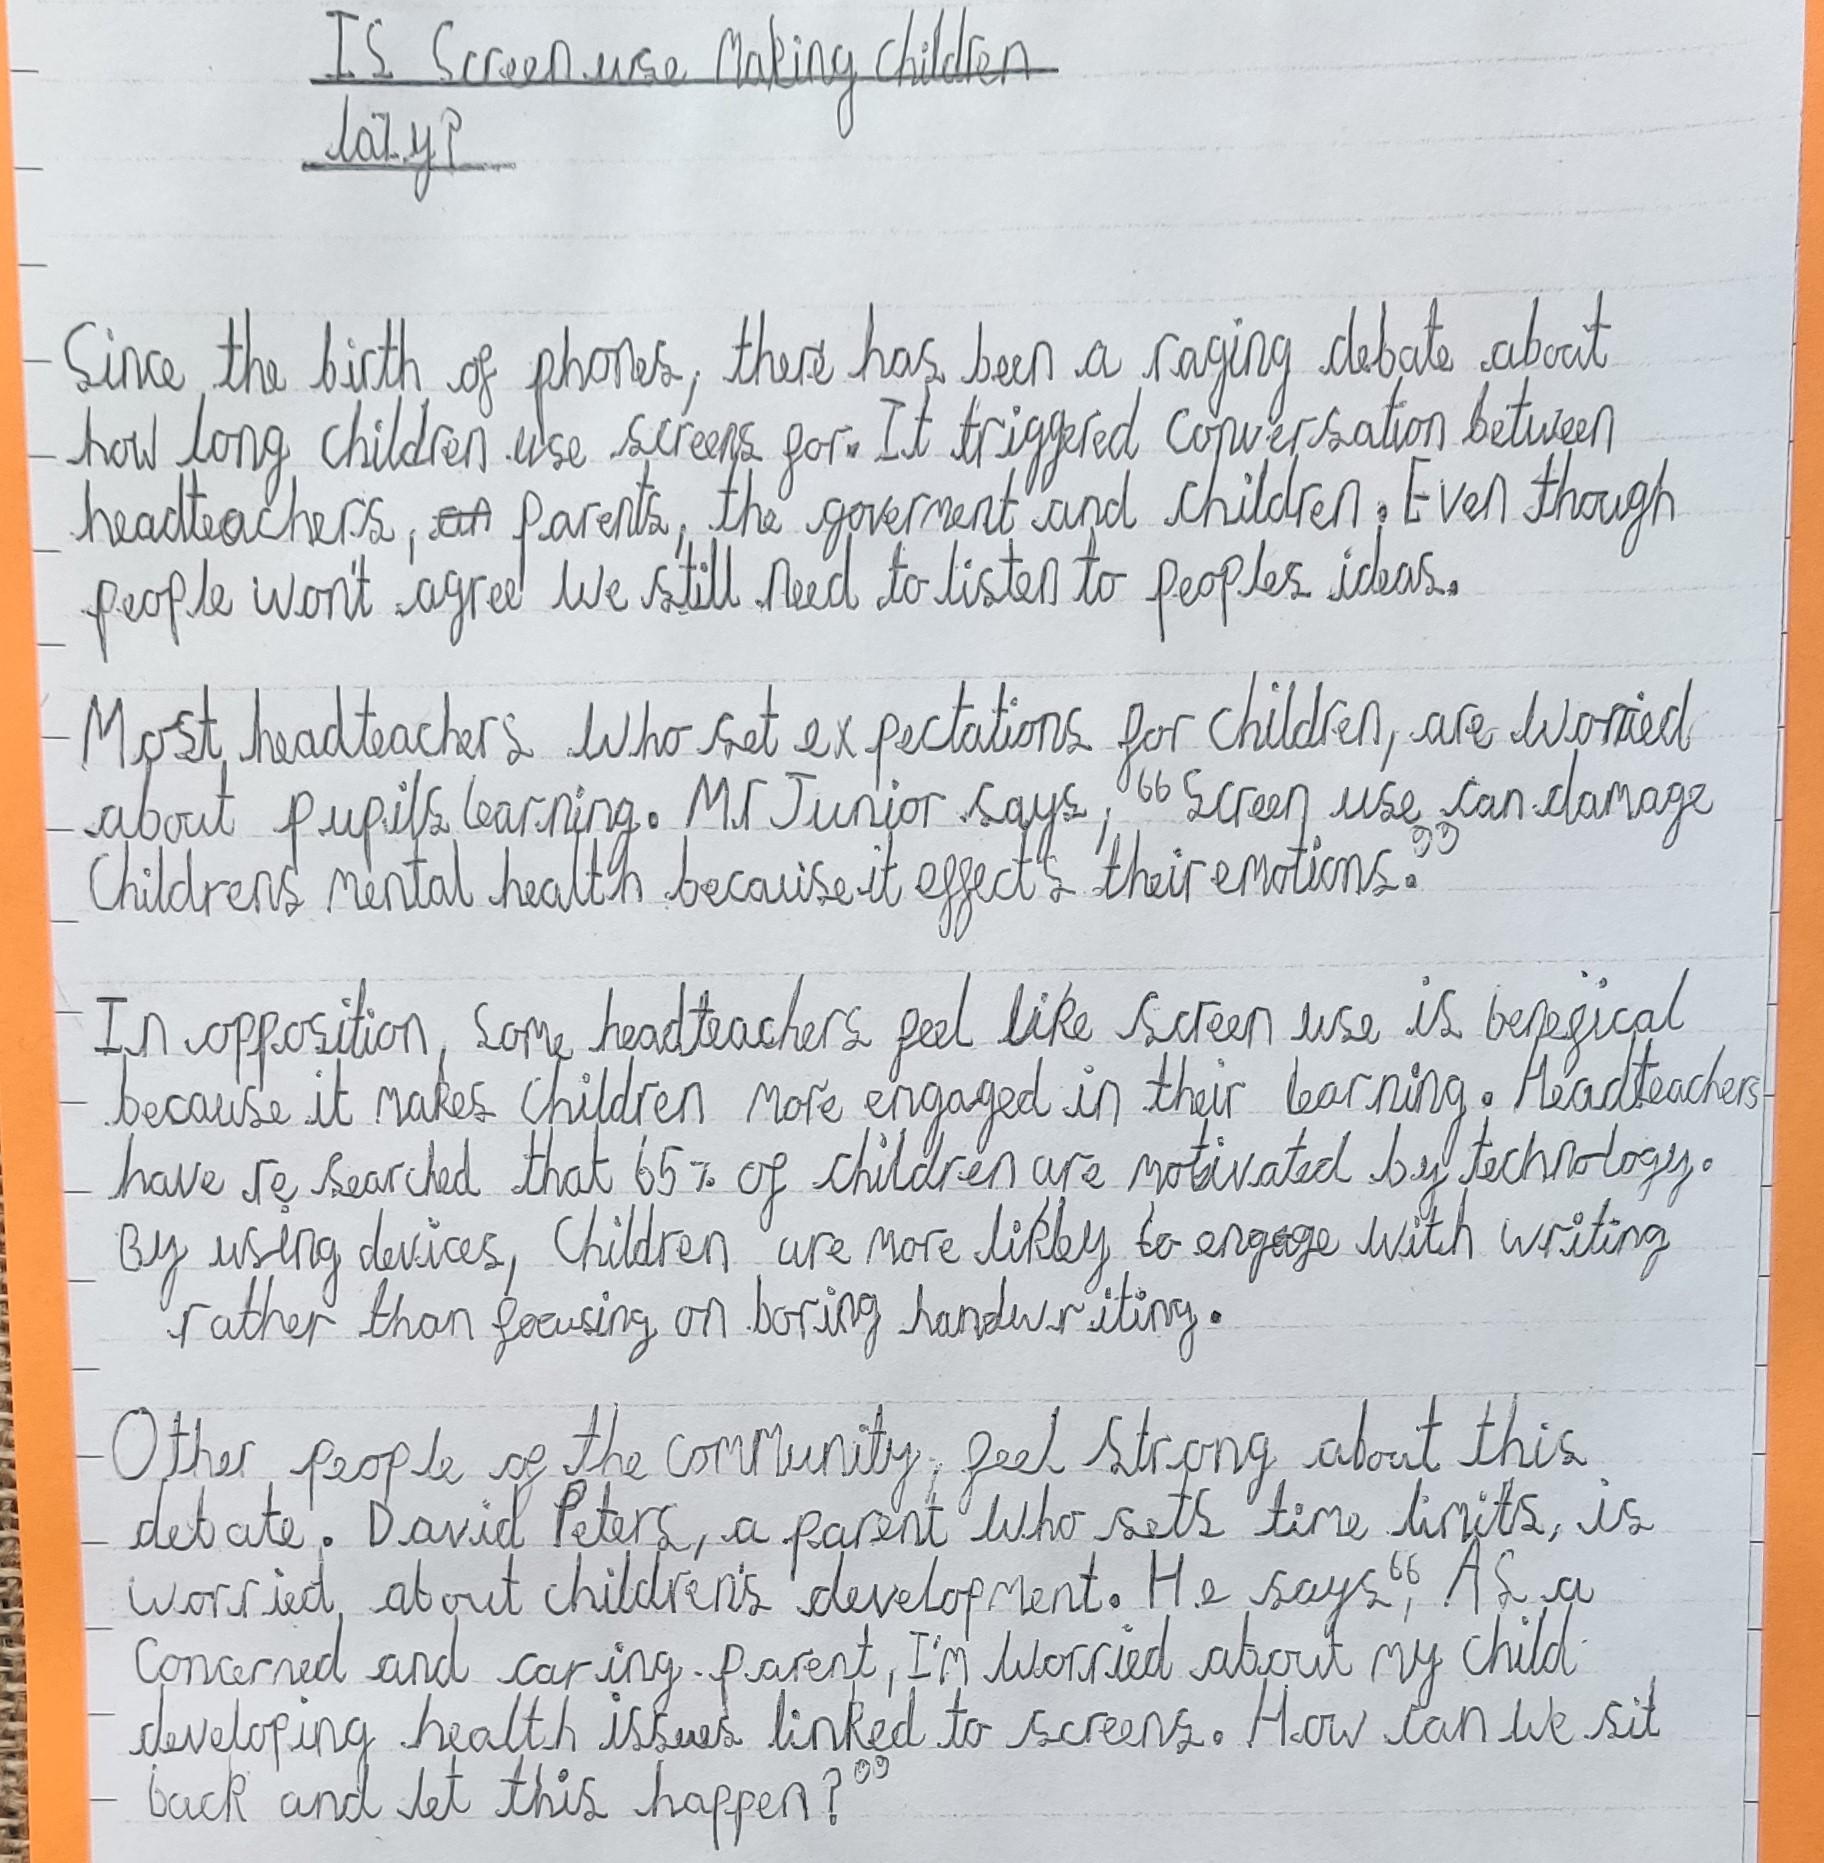 Is Screen use Making children
lazy?
Since the birth of phones, there has been a raging debate about
how long children use screens for. It triggered conversation between
headteachers, an parents, the goverment and children. Even though
people won't agree we still need to listen to peoples ideas.
Most headteachers who set expectations for children, are worried
about pupils learning. Mr Junior says, “Screen use can damage
Childrens mental health because it effects their emotions.”
In opposition, some headteachers feel like screen use is benefical
because it makes children more engaged in their learning. Headteachers
have researched that 65% of children are motivated by technology.
By using devices, Children are more likley to engage with writing
rather than focusing on boring handwriting.
Other people of the community, feel strong about this
debate. David Peters, a parent who sets time limits, is
worried about children's development. He says“, As a
concerned and caring parent, I'm worried about my child
developing health issues linked to screens. How can we sit
back and let this happen?”